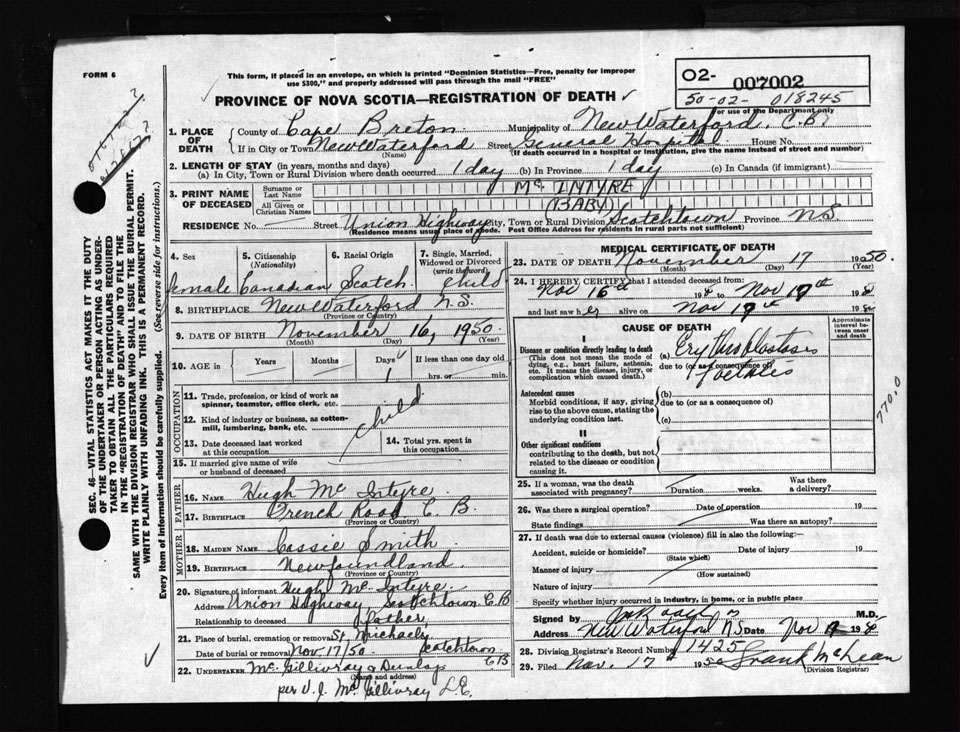 FORM 6
This form, if placed in an envelope, on which is printed "Dominion Statistics—Free, penalty for improper
use $300," and properly addressed will pass through the mail "FREE"
PROVINCE OF NOVA SCOTIA—REGISTRATION OF DEATH
02- 007002
50-02- 018245
For use of the Department only
1. PLACE OF DEATH
County of Cape Breton Municipality of New Waterford, C.B.
If in City or Town New Waterford Street General Hospital House No.
(Name) (If death occurred in a hospital or institution, give the name instead of street and number)
2. LENGTH OF STAY (in years, months and days)
(a) In City, Town or Rural Division where death occurred 1 day (b) in Province 1 day (c) In Canada (if immigrant)
3. PRINT NAME OF DECEASED
Surname or Last Name Mc INTYRE
All Given or Christian Names (BABY)
RESIDENCE No. — Street Union Highway City, Town or Rural Division Scotchtown Province N.S.
(Residence means usual place of abode. Post Office Address for residents in rural parts not sufficient)
4. Sex female
5. Citizenship (Nationality) Canadian
6. Racial Origin Scotch
7. Single, Married, Widowed or Divorced (write the word) child
8. BIRTHPLACE New Waterford N.S.
(Province or Country)
9. DATE OF BIRTH November 16, 1950
(Month) (Day) (Year)
10. AGE in Years Months Days 1 If less than one day old hrs. or min.
OCCUPATION
11. Trade, profession, or kind of work as spinner, teamster, office clerk, etc.
12. Kind of industry or business, as cotton-mill, lumbering, bank, etc.
child
13. Date deceased last worked at this occupation
14. Total yrs. spent in this occupation
15. If married give name of wife or husband of deceased
FATHER
16. NAME Hugh Mc Intyre
17. BIRTHPLACE French Road C.B.
(Province or Country)
MOTHER
18. MAIDEN NAME Cassie Smith
19. BIRTHPLACE Newfoundland
(Province or Country)
20. Signature of informant Hugh Mc Intyre
Address Union Highway Scotchtown C B
Relationship to deceased father
21. Place of burial, cremation or removal St. Michaels
Date of burial or removal Nov. 17/50 Scotchtown CB
22. UNDERTAKER Mc Gillivray & Dunlop
(Name and address)
per V. J. Mc Gillivray L.E.
MEDICAL CERTIFICATE OF DEATH
23. DATE OF DEATH November 17 1950
(Month) (Day) (Year)
24. I HEREBY CERTIFY that I attended deceased from:
Nov 16th 19 to Nov 17th 19
and last saw her alive on Nov 17th 19
CAUSE OF DEATH
Approximate interval between onset and death
I
Disease or condition directly leading to death
(This does not mean the mode of dying, e.g., heart failure, asthenia, etc. It means the disease, injury, or complication which caused death.)
(a) Erythroblastosis
due to (or as a consequence of)
Foetales
Antecedent causes
Morbid conditions, if any, giving rise to the above cause, stating the underlying condition last.
(b)
due to (or as a consequence of)
(c)
II
Other significant conditions
contributing to the death, but not related to the disease or condition causing it.
770.0
25. If a woman, was the death associated with pregnancy? Duration weeks. Was there a delivery?
26. Was there a surgical operation? Date of operation 19
State findings Was there an autopsy?
27. If death was due to external causes (violence) fill in also the following:—
Accident, suicide or homicide? Date of injury 19
(State which)
Manner of injury
(How sustained)
Nature of injury
Specify whether injury occurred in industry, in home, or in public place
Signed by M.D.
Address New Waterford N.S. Date Nov 19
28. Division Registrar's Record Number 1425
29. Filed Nov. 17th 1950 Frank McLean
(Division Registrar)
SEC. 46—VITAL STATISTICS ACT MAKES IT THE DUTY
OF THE UNDERTAKER OR PERSON ACTING AS UNDER-
TAKER TO OBTAIN ALL THE PARTICULARS REQUIRED
IN THE "REGISTRATION OF DEATH" AND TO FILE THE
SAME WITH THE DIVISION REGISTRAR WHO SHALL ISSUE THE BURIAL PERMIT.
WRITE PLAINLY WITH UNFADING INK. THIS IS A PERMANENT RECORD.
Every item of information should be carefully supplied. (See reverse side for instructions.)